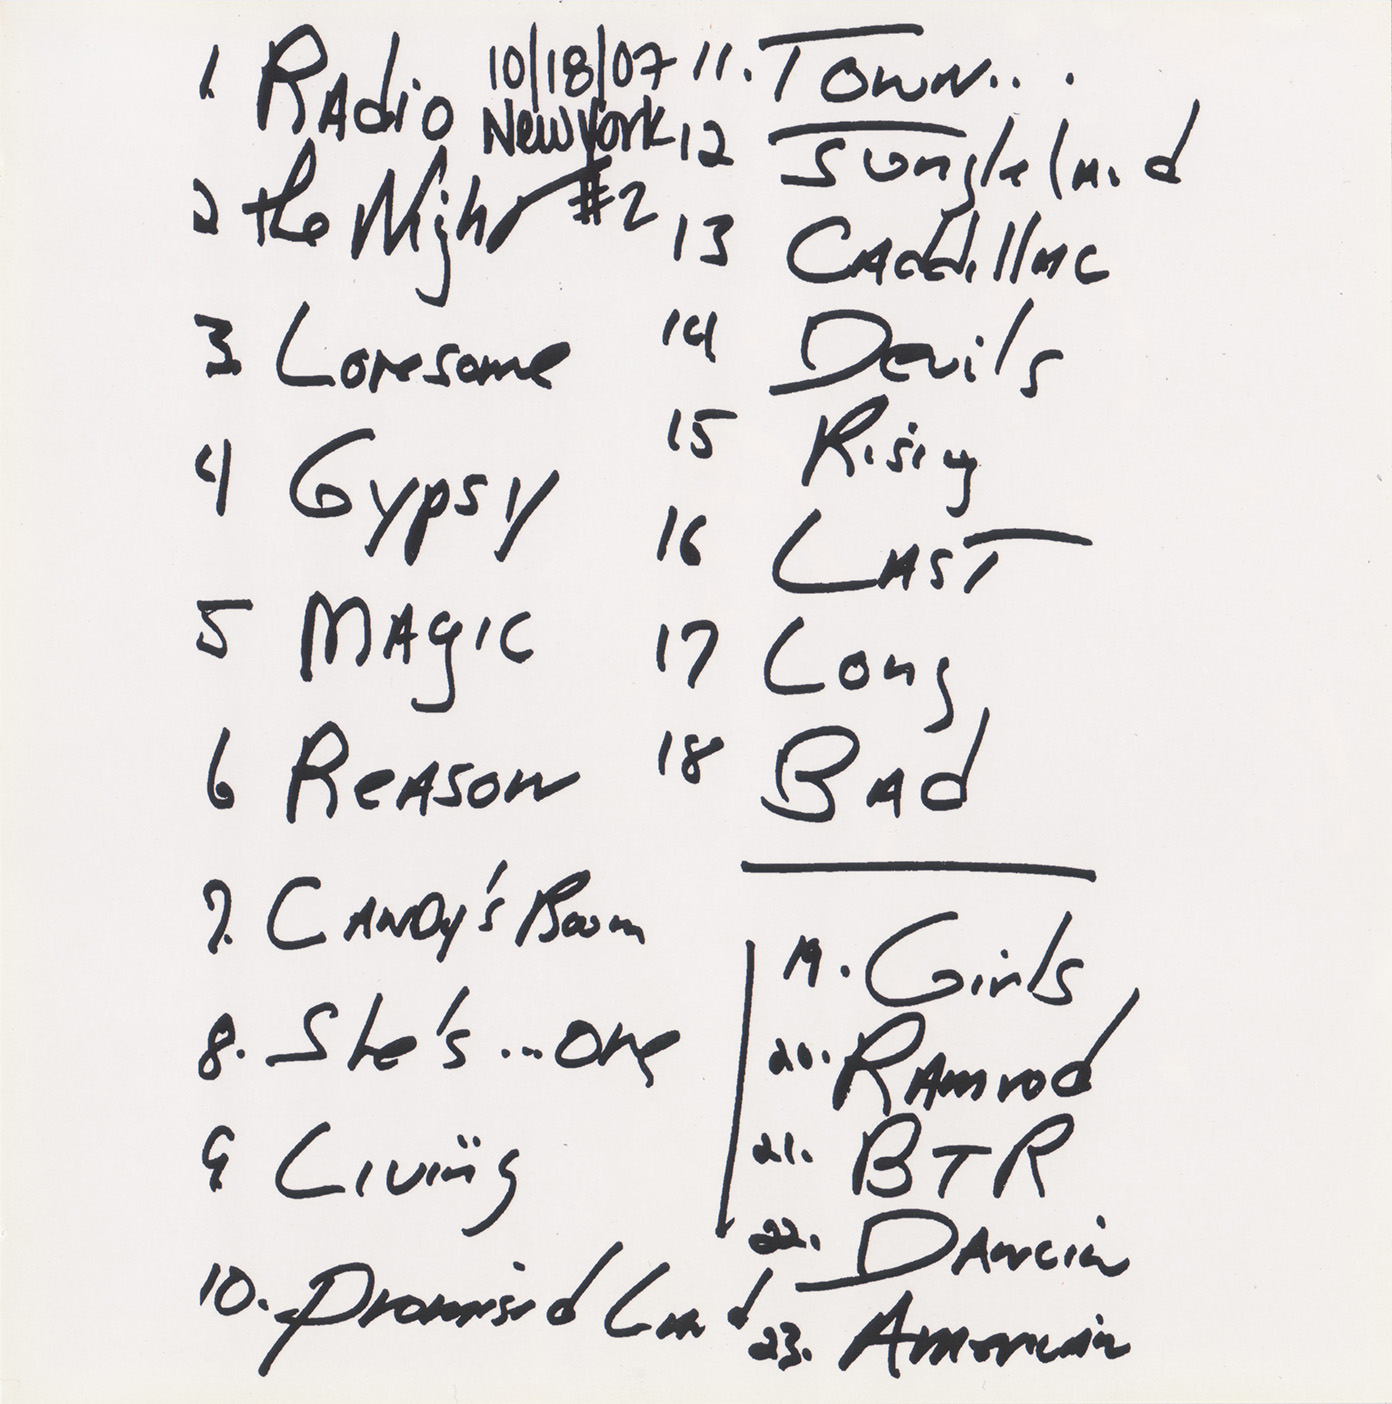 1. Radio
10/18/07
New York
#2
2 the Night
3 Lonesome
4 Gypsy
5 Magic
6 Reason
7. Candy's Room
8. She's...one
9 Living
10. Promised Land
11. Town...
12 Jungleland
13 Cadillac
14 Devils
15 Rising
16 Last
17 Long
18 Bad
19. Girls
20. Ramrod
21. BTR
22. Dancin
23. American